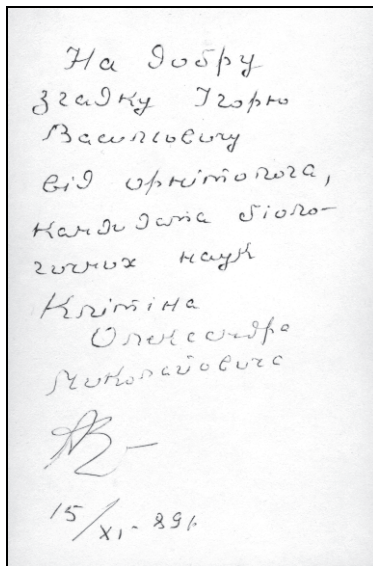 На добру
згадку Ігорю
Васильовичу
від орнітолога,
кандидата біоло-
гічних наук
Клітіна
Олександра
Миколайовича
15/XI-89г.